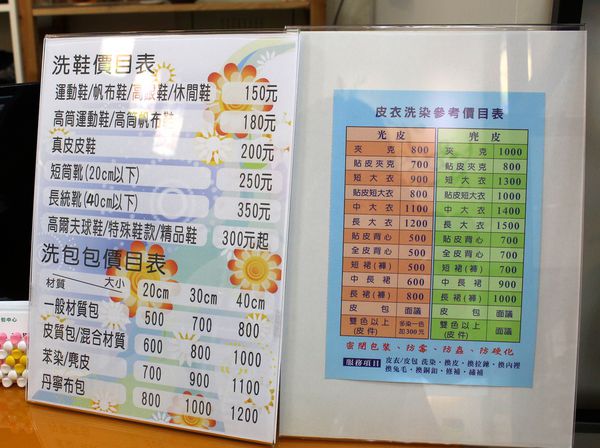 洗鞋價目表
運動鞋/帆布鞋/高跟鞋/休閒鞋 150元
高筒運動鞋/高筒帆布鞋 180元
真皮皮鞋 200元
短筒靴(20cm以下) 250元
長統靴(40cm以下) 350元
高爾夫球鞋/特殊鞋款/精品鞋 300元起
洗包包價目表
材質 大小 20cm 30cm 40cm
一般材質包 500 700 800
皮質包/混合材質 600 800 900
苯染/麂皮 700 900 1100
丹寧布包 800 1000 1200
皮衣洗染參考價目表
光皮 麂皮
夾克 800 夾克 1000
貼皮夾克 700 貼皮夾克 800
短大衣 900 短大衣 1300
貼皮短大衣 800 貼皮短大衣 1000
中大衣 1100 中大衣 1400
長大衣 1200 長大衣 1500
貼皮背心 500 貼皮背心 700
全皮背心 500 全皮背心 700
短裙(褲) 500 短裙(褲) 700
中長裙 600 中長裙 900
長裙(褲) 800 長裙(褲) 1000
皮包 面議 皮包 面議
雙色以上(皮件) 多染一色加300元 雙色以上(皮件) 面議
密閉包裝、防霉、防蟲、防硬化
服務項目 皮衣/皮包 洗染、換皮、換拉鍊、換內裡
換兔毛、換銅釦、修補、縫補
包中心